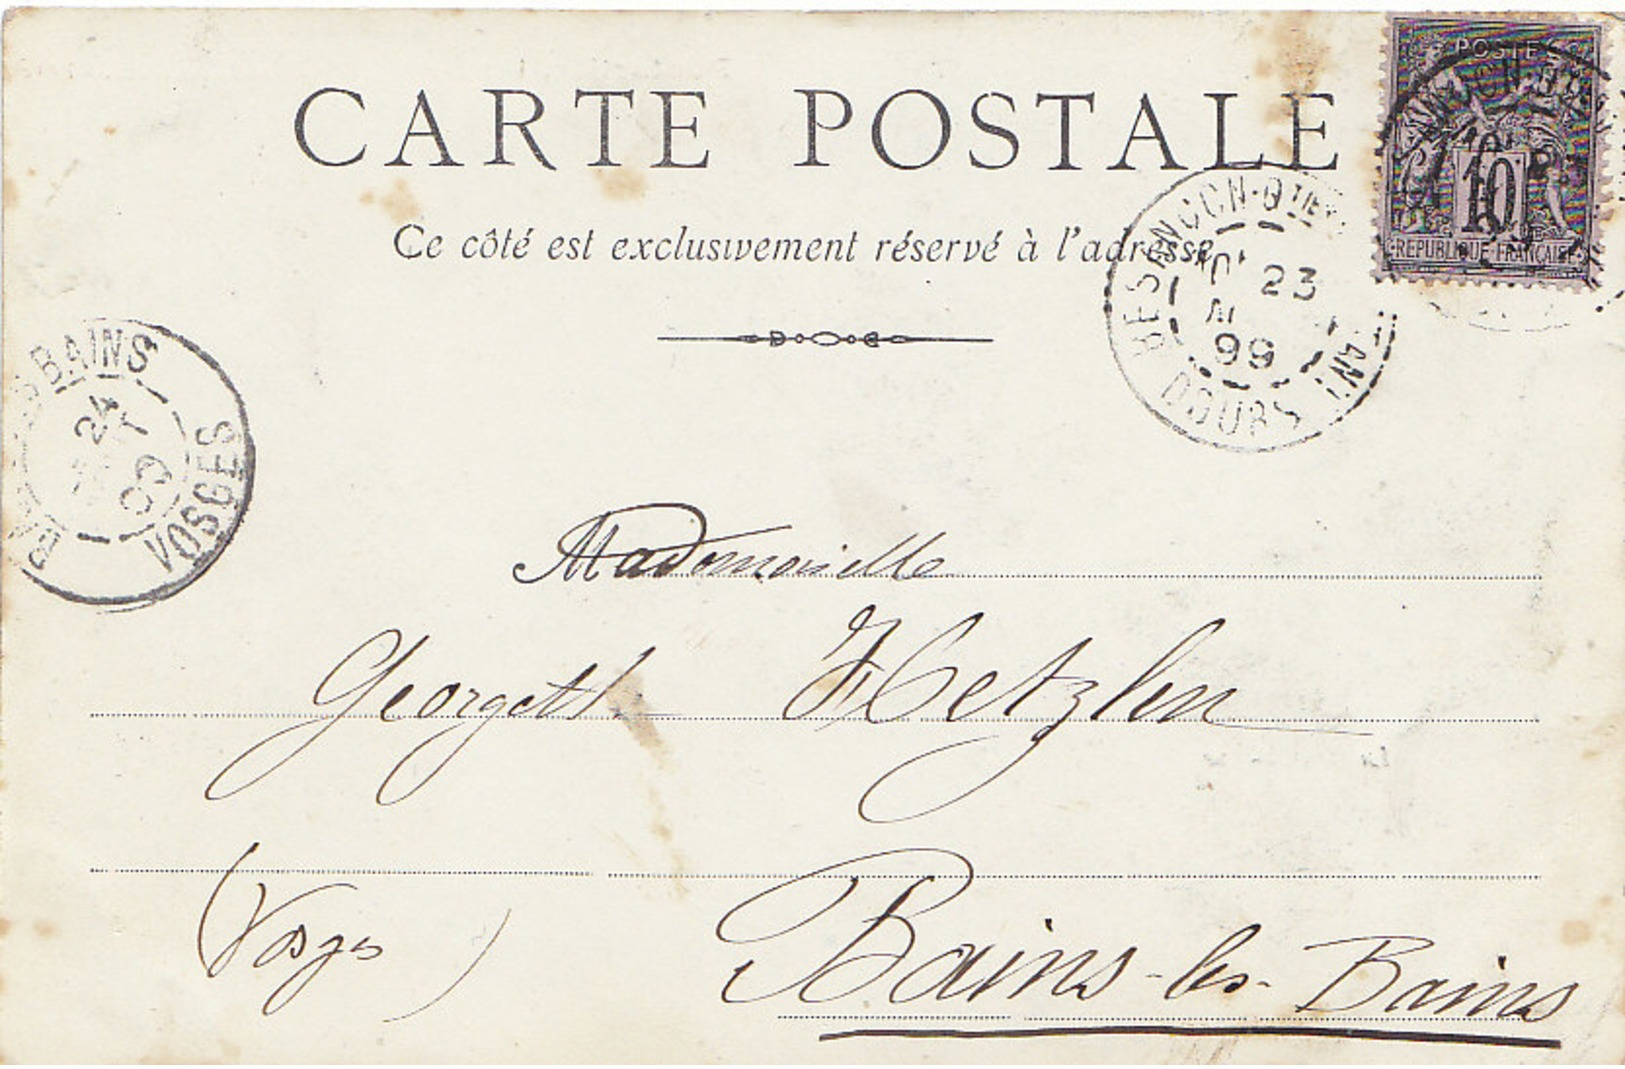 CARTE POSTALE
Ce côté est exclusivement réservé à l'adresse
POSTES
10
REPUBLIQUE FRANÇAISE
BESANCON-QTIER
23
99
DOUBS
BAINS
24
99
VOSGES
Mademoiselle
Georgette
(Vosges)
Bains-les-Bains